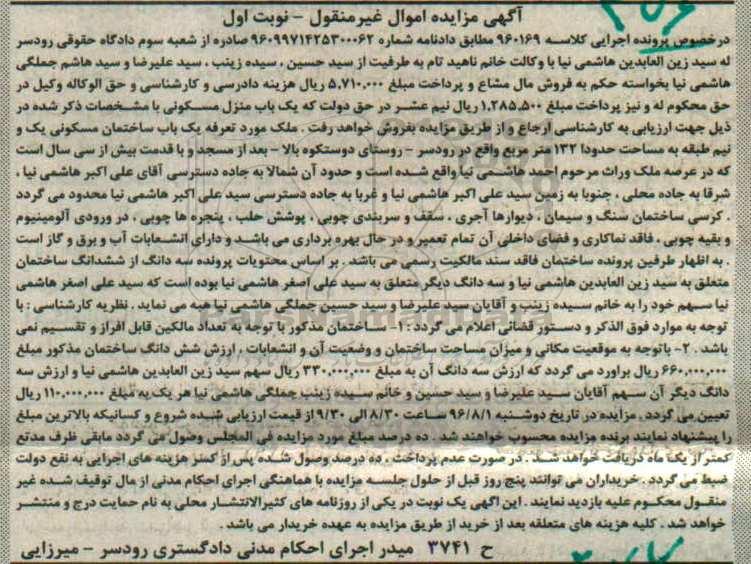 آگهی مزایده اموال غیرمنقول - نوبت اول
درخصوص پرونده اجرایی کلاسه ۹۶۰۱۶۹ مطابق دادنامه شماره ۹۶۰۹۹۷۱۴۲۵۳۰۰۰۶۲ صادره از شعبه سوم دادگاه حقوقی رودسر
له سید زین العابدین هاشمی نیا با وکالت خانم ناهید تام به طرفیت از سید حسین ، سیده زینب ، سید علیرضا و سید هاشم جملگی
هاشمی نیا بخواسته حکم به فروش مال مشاع و پرداخت مبلغ ۵,۷۱۰,۰۰۰ ریال هزینه دادرسی و کارشناسی و حق الوکاله وکیل در
حق محکوم له و نیز پرداخت مبلغ ۱,۲۸۵,۵۰۰ ریال نیم عشر در حق دولت که یک باب منزل مسکونی با مشخصات ذکر شده در
ذیل جهت ارزیابی به کارشناسی ارجاع و از طریق مزایده بفروش خواهد رفت . ملک مورد تعرفه یک باب ساختمان مسکونی یک و
نیم طبقه به مساحت حدودا ۱۳۲ متر مربع واقع در رودسر - روستای دوستکوه بالا - بعد از مسجد و با قدمت بیش از سی سال است
که در عرصه ملک وراث مرحوم احمد هاشمی نیا واقع شده است و حدود آن شمالا به جاده دسترسی آقای علی اکبر هاشمی نیا ،
شرقا به جاده محلی ، جنوبا به زمین سید علی اکبر هاشمی نیا و غربا به جاده دسترسی سید علی اکبر هاشمی نیا محدود می گردد
. کرسی ساختمان سنگ و سیمان ، دیوارها آجری ، سقف و سربندی چوبی ، پوشش حلب ، پنجره ها چوبی ، در ورودی آلومینیوم
و بقیه چوبی ، فاقد نماکاری و فضای داخلی آن تمام تعمیر و در حال بهره برداری می باشد و دارای انشعابات آب و برق و گاز است
. به اظهار طرفین پرونده ساختمان فاقد سند مالکیت رسمی می باشد . بر اساس محتویات پرونده سه دانگ از ششدانگ ساختمان
متعلق به سید زین العابدین هاشمی نیا و سه دانگ دیگر متعلق به سید علی اصغر هاشمی نیا بوده است که سید علی اصغر هاشمی
نیا سهم خود را به خانم سیده زینب و آقایان سید علیرضا و سید حسین جملگی هاشمی نیا هبه می نماید . نظریه کارشناسی : با
توجه به موارد فوق الذکر و دستور قضائی اعلام می گردد : ۱- ساختمان مذکور با توجه به تعداد مالکین قابل افراز و تقسیم نمی
باشد . ۲- باتوجه به موقعیت مکانی و میزان مساحت ساختمان و وضعیت آن و انشعابات ، ارزش شش دانگ ساختمان مذکور مبلغ
۶۶۰,۰۰۰,۰۰۰ ریال براورد می گردد که ارزش سه دانگ آن به مبلغ ۳۳۰,۰۰۰,۰۰۰ ریال سهم سید زین العابدین هاشمی نیا و ارزش سه
دانگ دیگر آن سهم آقایان سید علیرضا و سید حسین و خانم سیده زینب جملگی هاشمی نیا هر یک به مبلغ ۱۱۰,۰۰۰,۰۰۰ ریال
تعیین می گردد . مزایده در تاریخ دوشنبه ۹۶/۸/۱ ساعت ۸/۳۰ الی ۹/۳۰ از قیمت ارزیابی شده شروع و کسانیکه بالاترین مبلغ
را پیشنهاد نمایند برنده مزایده محسوب خواهند شد . ده درصد مبلغ مورد مزایده فی المجلس وصول می گردد مابقی ظرف مدتع
کمتر از یک ماه دریافت خواهد شد . در صورت عدم پرداخت ، ده درصد وصول شده پس از کسر هزینه های اجرایی به نفع دولت
ضبط می گردد . خریداران می توانند پنج روز قبل از حلول جلسه مزایده با هماهنگی اجرای احکام مدنی از مال توقیف شده غیر
منقول محکوم علیه بازدید نمایند . این اگهی یک نوبت در یکی از روزنامه های کثیرالانتشار محلی به نام حمایت درج و منتشر
خواهد شد . کلیه هزینه های متعلقه بعد از خرید از طریق مزایده به عهده خریدار می باشد .
ح ۳۷۴۱ میدر اجرای احکام مدنی دادگستری رودسر - میرزایی